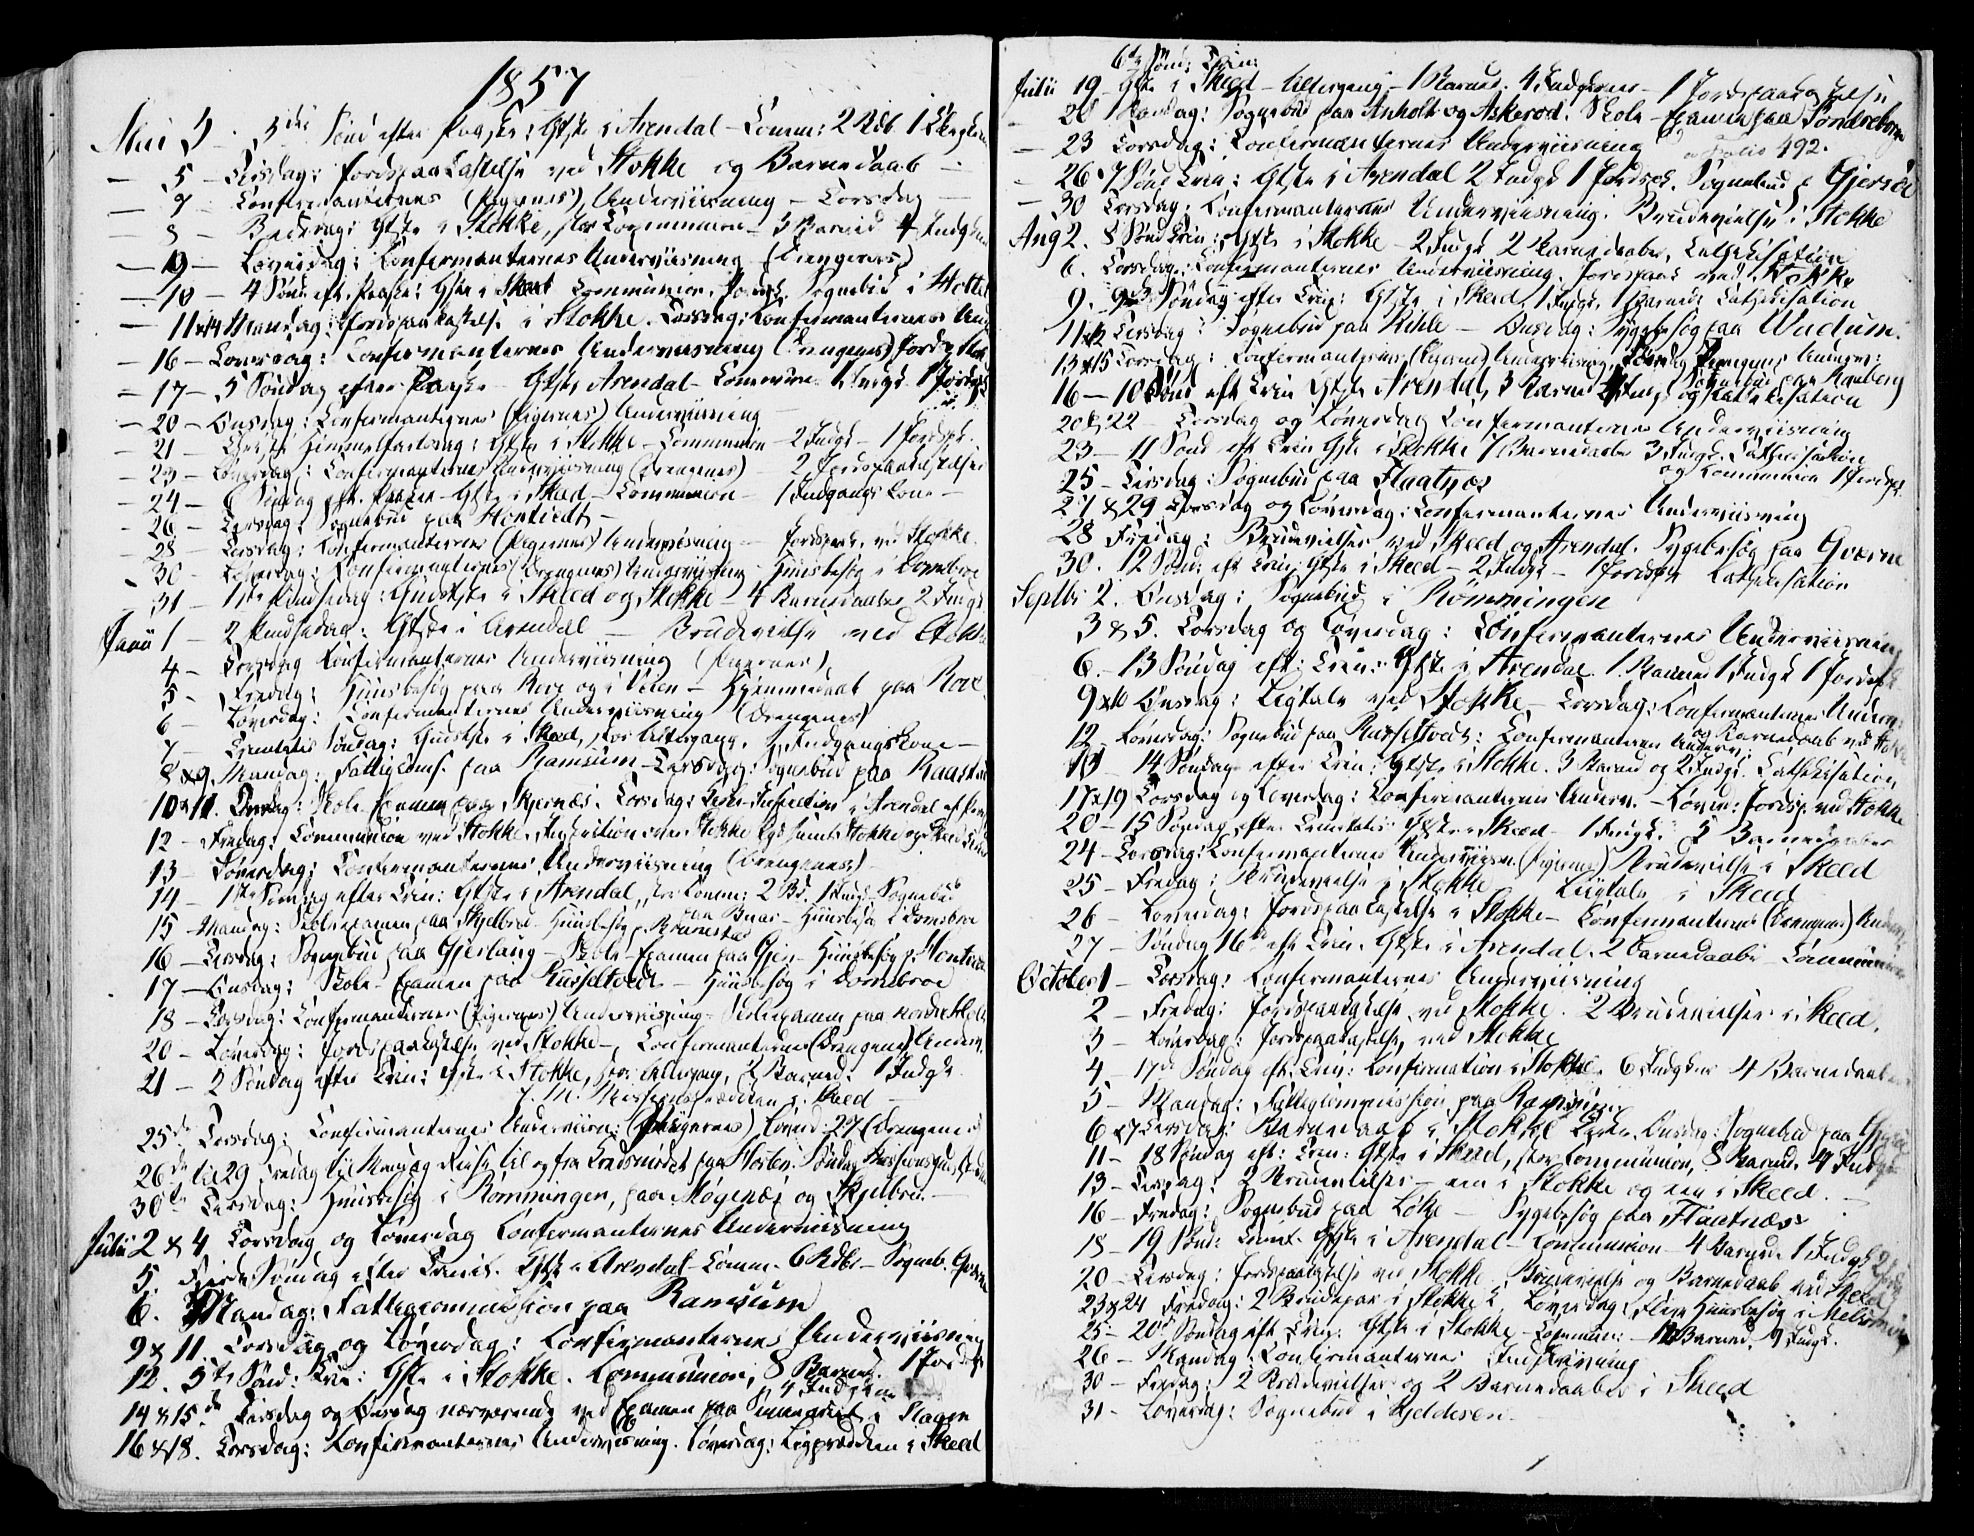 1857
Mai 3 - 3die Sønd efter Paaske: Gtste i Arendal - Comm: 2 Bdb. 1
- 5 - Tirsdag: Jordspaakastelse ved Stokke og Barnedaab -
- 7 - Confirmanternes (Pigernes) Underviisning - Torsdag -
- 8 - Bededag: Gtste i Stokke, stor Communion - 3 Barned 4 Indg
- 9 - Løverdag: Confirmanternes Underviisning (Drengenes)
- 10 - 4 Sønd. eft. Paaske: Gtste i Skeed Communion. Sognebud i
- 11 & 14 Mandag: Jordspaakastelse i Stokke. Torsdag: Confirmanternes Und
- 16 - Løverdag: Confirmanternes Underviisning (Drengenes) Jords Stok
- 17 - 5 Søndag efter Paaske - Gtste Arendal - Communion 1 Indgk 1 Jordsp
- 20 - Onsdag: Confirmanternes (Pigernes) Underviisning
- 21 - Christi Himmelfartsdag: Gtste i Stokke - Communion - 2 Indgk - 1 Jordspk.
- 23 - Løverdag: Confirmanternes Underviisning (Drengenes) - 2 Jordspaakastelser
- 24 - 6 Søndag eft. Paaske - Gtste i Skeed - Communion - 1 Indgangskone -
- 26 - Tirsdag: Sognebud paa
- 28 - Torsdag: Confirmanternes (Pigernes) Underviisning - Jordspk. ved Stokke.
- 30 - Løverdag: Confirmanternes (Drengenes) Underviisning - Huusbesøg i
- 31 - 1ste Pindsedag: Gudstjste i Skeed og Stokke - 4 Barnedaaber 2 Indgk
Junii 1 - 2 Pindsedag: Gtste i Arendal - Brudevielse ved Stokke
4 - Torsdag Confirmanternes Underviisning (Pigernes)
5 - Fredag: Huusbesøg paa Rove og i Veien - paa Rove
6 - Løverdag: Confirmanternes Underviisning (Drengenes)
7 - Trinitatis Søndag: Gudstste i Skeed, stor Altergang. 2 Indgangskone -
8 & 9 Mandag: Fattigcoms. paa Ramsum - Tirsdag: Sognebud paa Raastad
10 & 11. Onsdag: Skole-Examen paa Skjernæs. Torsdag: i Arendal
12 - Fredag: Communion ved Stokke
13 - Løverdag: Confirmanternes Underviisning (Drengenes)
14 - 1ste Søndag efter Trin: Gtste i Arendal, stor Comm: 2 Bd. 1 Indg - Sognebud
15 - Mandag: Skoleexamen paa Skjelbred - Huusbesøg
16 - Tirsdag: Sognebud paa Gjerlaug - Skole-Examen paa Gjen - Huusbesøg p.
17 - Onsdag: Skole-Examen paa Russeltvedt - Huusbesøg i
18 - Torsdag: Confirmanternes (Pigernes) Underviisning - Skoleexamen paa
20 - Løverdag: Jordspaakastelse ved Stokke -, Confirmanternes (Drengenes) Underv.
21 - 2 Søndag efter Trin: Gtste i Stokke, stor Altergang, 2 Barned. 1 Indgk.
J. M. Missionsprædiken i Skeed -
25de Torsdag: Confirmanternes Underviisn: (Pigernes) Løverd: 27 (Drengenes)
26de til 29 Fredag til Mandag Reise til og fra paa Horten. Søndag
30te Tirsdag: Huusbesøg i Rømmingen, paa Møgenæs og Skjelbred -
Julii 2 & 4 Torsdag og Løverdag Confirmanternes Underviisning
5. Fjerde Søndag efter Trinit. Gtste i Arendal - Comm. 6 Bdb. - Sogneb.
6. Mandag: Fattigcommission paa Ramsum
9 & 11. Torsdag og Løverdag: Confirmanternes Underviisning
12. 5te Sønd: Trin: Gtste i Stokke. Communion, 8 Barned. 1 Jordsp
4 Indgkoner
14 & 15de Tirsdag og Onsdag nærværende ved Examen paa Seminariet i Slagen
16 & 18. Torsdag: Confirmanternes Underviisning. Løverdag: Liigprædiken i Skeed
6te Sønd: Trin:
Julii 19 - Gtste i Skeed - Altergang - 1 Barned. 4 Indgkoner - 1 Jordspaakastelse
- 20 Mandag: Sognebud paa Anholt og Askerød. Skole-Examen paa Sondreborge
- 23 Torsdag: Confirmanternes Underviisning
492.
- 26 7 Sønd Trin: Gtste i Arendal 2 Indgk 1 Jordspk. Sognebud p
- 30 Torsdag: Confirmanternes Underviisning. Brudevielse i Stokke
Aug 2. 8 Sønd Trin: Gtste i Stokke - 2 Indgk 2 Barnedaaber, Cathekisation
6. Torsdag: Confirmanternes Underviisning. Jordspaak ved Stokke
9. 9de Søndag efter Trin: Gtste i Skeed, 1 Indgk, 1 Barned: Cathekisation
11 & 12 Tirsdag: Sognebud paa - Onsdag: Sygebesøg paa Wadum.
13 & 15 Torsdag: Confirmanternes (Pigernes) Underviisning, Løverdag Drengenes Underv:
Sognebud paa Rauberg
16 - 10 Sønd eft Trin Gtste Arendal, 3 Barned Indgk og Cathekisation
20 & 22 - Torsdag og Løverdag Confirmanternes Underviisning
23 - 11 Sønd eft Trin Gtste i Stokke 7 Barnedaaber 3 Indgk. Cathekisation
og Communion 1 Jordspk.
25 - Tirsdag: Sognebud paa Flaatnæs
27 & 29 Torsdag og Løverdag: Confirmanternes Underviisning
28 Fredag: Brudevielser ved Skeed og Arendal. Sygebesøg paa Gværne
30. 12 Sønd: eft Trin: Gtste i Skeed - 2 Indgk - 1 Jordspk Cathekisation
Septbr 2. Onsdag: Sognebud i Rømmingen
3 & 5. Torsdag og Løverdag: Confirmanternes Underviisning
6. - 13 Søndag eft: Trin: Gtste i Arendal. 1 Barned 1 Indgk 1 Jordspk
9 & 10 Onsdag: Ligtale ved Stokke - Torsdag: Confirmanternes Underv:
og Barnedaab ved Stokke
12 Løverdag: Sognebud paa Russeltvedt: Confirmanternes Underv:
13 - 14 Søndag efter Trin: Gtste i Stokke. 3 Barned og 2 Indgk. Cathekisation,
17 & 19 Torsdag og Løverdag: Confirmanternes Underv. - Løver: Jordsp. ved Stokke
20 - 15 Søndag efter Trinitatis Gtste i Skeed - 1 Indgk. 5 Barnedaaber
24 - Torsdag: Confirmanternes Underviisn. (Pigernes) Brudevielse i Skeed
25 - Fredag: Brudevielse i Stokke Liigtale i Skeed
26 - Løverdag: Jordspaakastelse i Stokke - Confirmanternes (Drengenes) Underv
27 - Søndag 16de eft Trin. Gtste i Arendal. 2 Barnedaaber - Communion
October 1 - Torsdag: Confirmanternes Underviisning
2 - Fredag: Jordspaakastelse ved Stokke. 2 Brudevielser i Skeed.
3 - Løverdag: Jordspaakastelse, ved Stokke
4 - 17de Søndag eft. Trin: Confirmation i Stokke. 6 Indgkoner 4 Barnedaaber
5 - Mandag: Fattigcommission paa Ramsum.
6 & 7 Tirsdag: Barnedaab i Stokke Kirke. Onsdag: Sognebud paa
11 - 18 Søndag eft: Trin: Gtste i Skeed, stor Communion, 8 Barned. 4 Indgk
13 - Tirsdag: 2 Brudevielser - een i Stokke og een i Skeed. -
16 - Fredag: Sognebud paa Løke - Sygebesøg paa Flaatnæs
18 - 19 Sønd: Trinit. Gtste i Arendal - Communion - 4 Barned 1 Indgk 2
20 - Tirsdag: Jordspaakastelse ved Stokke. Brudevielse og Barnedaab ved Skeed
23 & 24 Fredag: 2 Brudepar i Stokke K. Løverdag: Flere Huusbesøg i Melsomvig
25 - 20de Søndag eft Trin: Gtste i Stokke - Communion: - Barned. 7 Indgk.
26 - Mandag: Confirmanternes Indskrivning
30 - Fredag: 2 Brudevielser og 2 Barnedaaber i Skeed
31 - Løverdag: Sognebud i Gjeldesen.